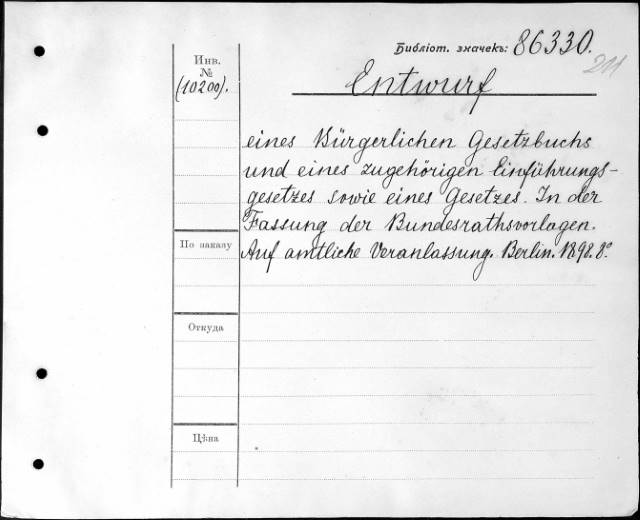 Библіот. значекъ: 86330.
211
Инв.
№
(10200).
Entwurf
eines Bürgerlichen Gesetzbuchs
und eines zugehörigen Einführungs-
gesetzes sowie eines Gesetzes. In der
Fassung der Bundesrathsvorlagen.
По заказу
Auf amtliche Veranlassung. Berlin. 1898. 8º
Откуда
Цѣна